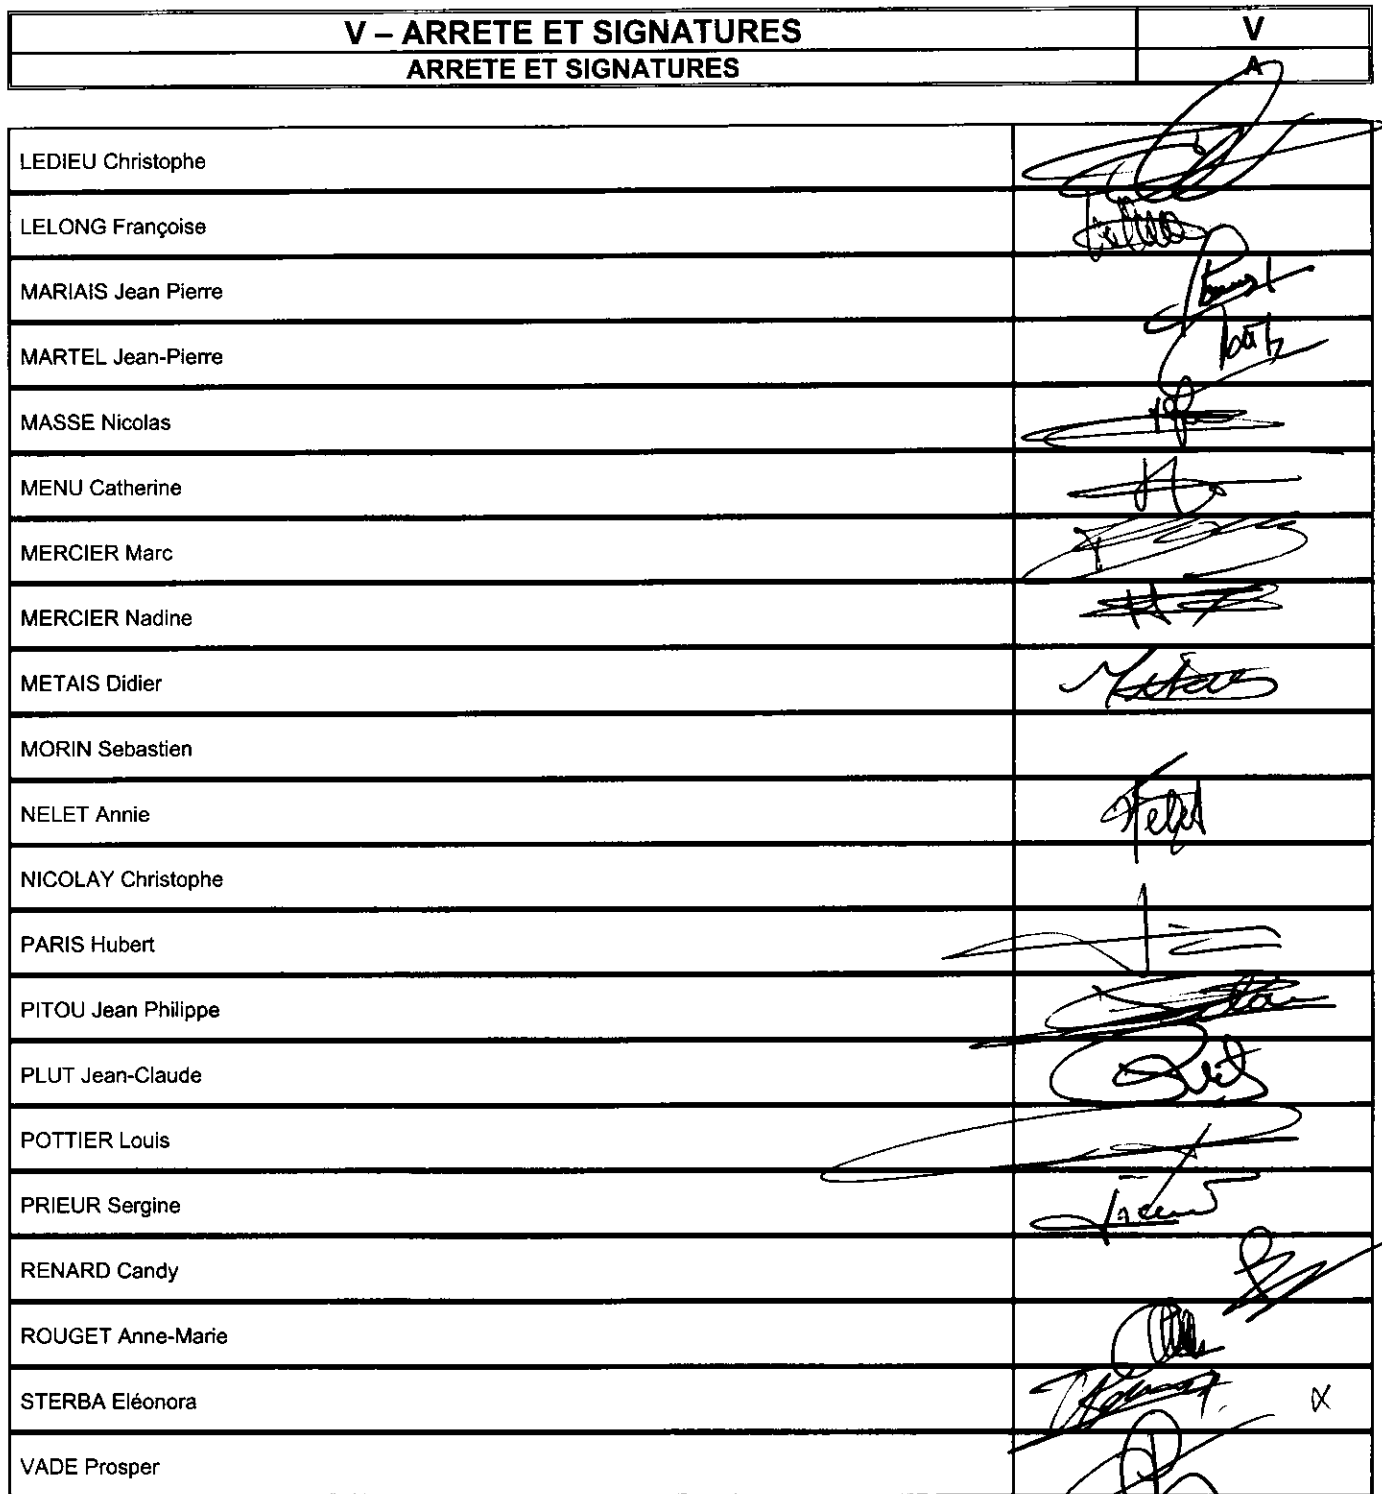 V – ARRETE ET SIGNATURES V
ARRETE ET SIGNATURES A
LEDIEU Christophe
LELONG Françoise
MARIAIS Jean Pierre
MARTEL Jean-Pierre
MASSE Nicolas
MENU Catherine
MERCIER Marc
MERCIER Nadine
METAIS Didier
MORIN Sebastien
NELET Annie Nelet
NICOLAY Christophe
PARIS Hubert
PITOU Jean Philippe
PLUT Jean-Claude
POTTIER Louis
PRIEUR Sergine
RENARD Candy
ROUGET Anne-Marie
STERBA Eléonora
VADE Prosper